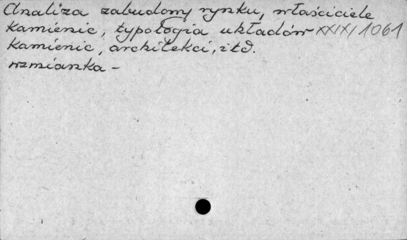 Analiza zabudowy rynku, właściciele
kamienic, typologia układów XXIX/1061
kamienic, architekci, itd.
wzmianka -